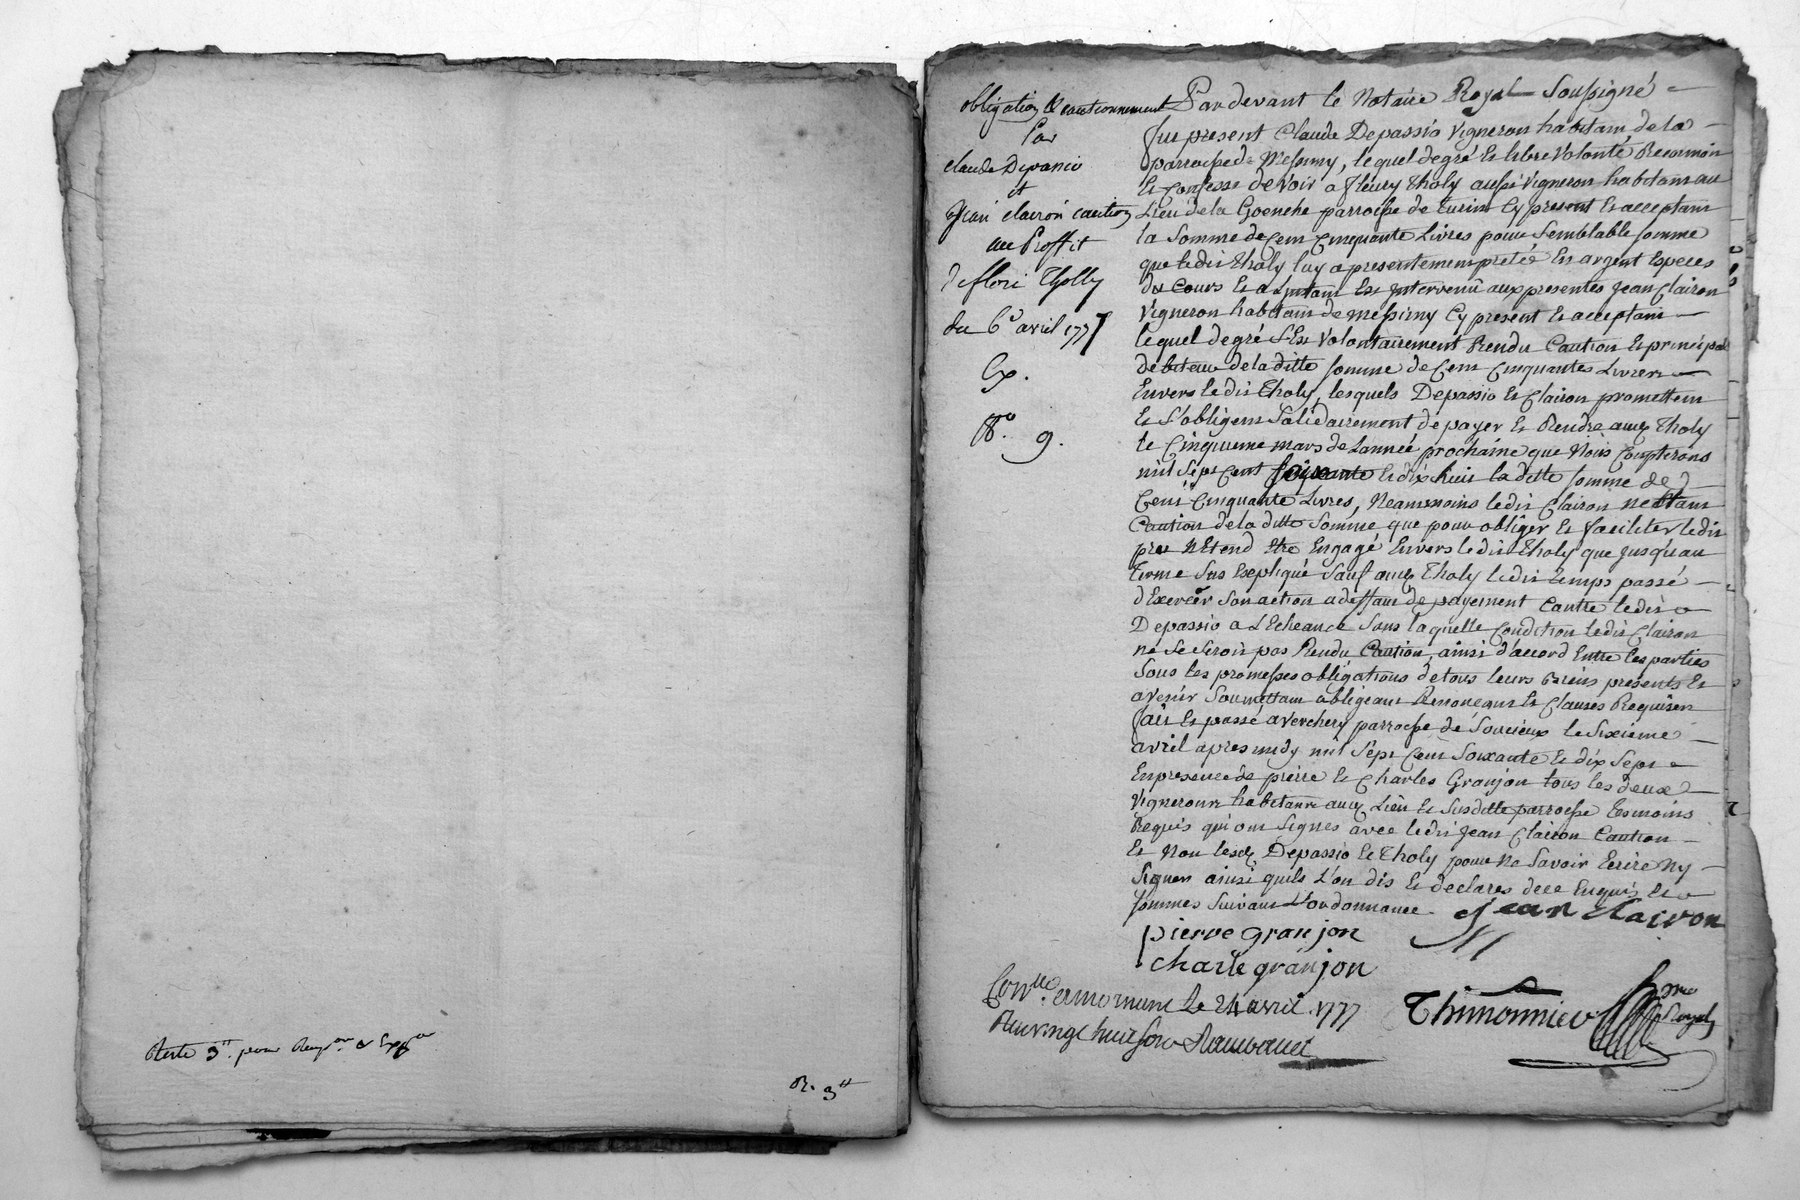 Reste 3ᵗᵗ. pour
R. 3ᵗᵗ
obligation & cautionnement
Par
claude Depanio
et
Jean clairon caution
au Proffit
de flori Tholly
du 6e avril 1777
Ex.
No. 9.
Pardevant le Notaire Royal Soussigné
fut present Claude Depassio Vigneron habitant de la
parroisse de Messimy, lequel de gré Et libre Volonté Reconnoit
Et Confesse devoir a fleury Tholy aussi Vigneron habitant au
Lieu de la parroisse de Turin Cy present Et acceptant
la Somme de Cent Cinquante Livres pour Semblable somme
que ledit Tholy luy a presentement pretée En argent Especes
du Cours Et a L'instant Est Intervenu aux presentes Jean Clairon
Vigneron habitant de Messimy Cy present Et acceptant
lequel de gré S'Est Volontairement Rendu Caution Et principal
debiteur de la ditte somme de Cent Cinquantes Livres
Envers ledit Tholy, lesquels Depassio Et Clairon promettent
Et S'obligent Solidairement de payer Et Rendre audt Tholy
le Cinquieme mars de L'année prochaine que Nous Compterons
mil Sept Cent soixante Et dix huit la ditte somme de
Cent Cinquante Livres, Neanmoins ledit Clairon netant
Caution de la ditte Somme que pour obliger Et faciliter le dit
pres N'Etend Etre Engagé Envers ledit Tholy que jusqu'au
terme Sus Expliqué Sauf audt Tholy ledit temps passé
d'Exercer Son action a deffaut de payement Contre ledit
Depassio a L'Echeance Sans laquelle Condition ledit Clairon
ne Se Seroit pas Rendu Caution, ainsi d'accord Entre les parties
Sous les promesses obligations de tous leurs Biens presents Et
avenir Soumettant obligeant Renonçant Et Clauses Requises
fait Et passé a Verchery parroisse de Soucieux le Sixieme
avril apres midy mil Sept Cent Soixante Et dix Sept
En presence de pierre Et Charles Granjon tous les deux
Vignerons habitants audt Lieu Et Susditte parroisse temoins
Requis qui ont Signés avec ledit Jean Clairon Caution
Et Non lesdt Depassio Et Tholy pour Ne Savoir Ecrire Ny
Signer ainsi quils L'ont dit Et declarés de ce Enquis Et
sommés Suivant L'ordonnance.
Jean Clairon
pierre granjon
charle granjon
Conlle. a mornant Le 24 avril 1777
Reçu vingt huit sous
Thimonnier
Nre Royal